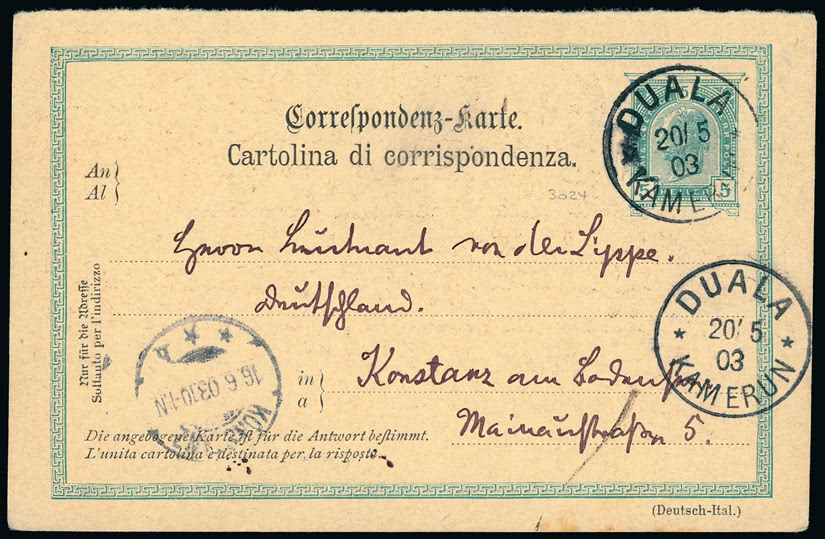 Correspondenz-Karte.
Cartolina di corrispondenza.
DUALA
20/5
03
KAMERUN
5 HELLER 5
3024
An
Al
Herrn Leutnant von der Lippe.
Deutschland.
DUALA
20/5
03
KAMERUN
Nur für die Adresse
Soltanto per l'indirizzo
16.6.03.10-11N
in
a
Konstanz am Bodensee
Mainaustraße 5.
Die angebogene Karte ist für die Antwort bestimmt.
L'unita cartolina è destinata per la risposta.
(Deutsch-Ital.)